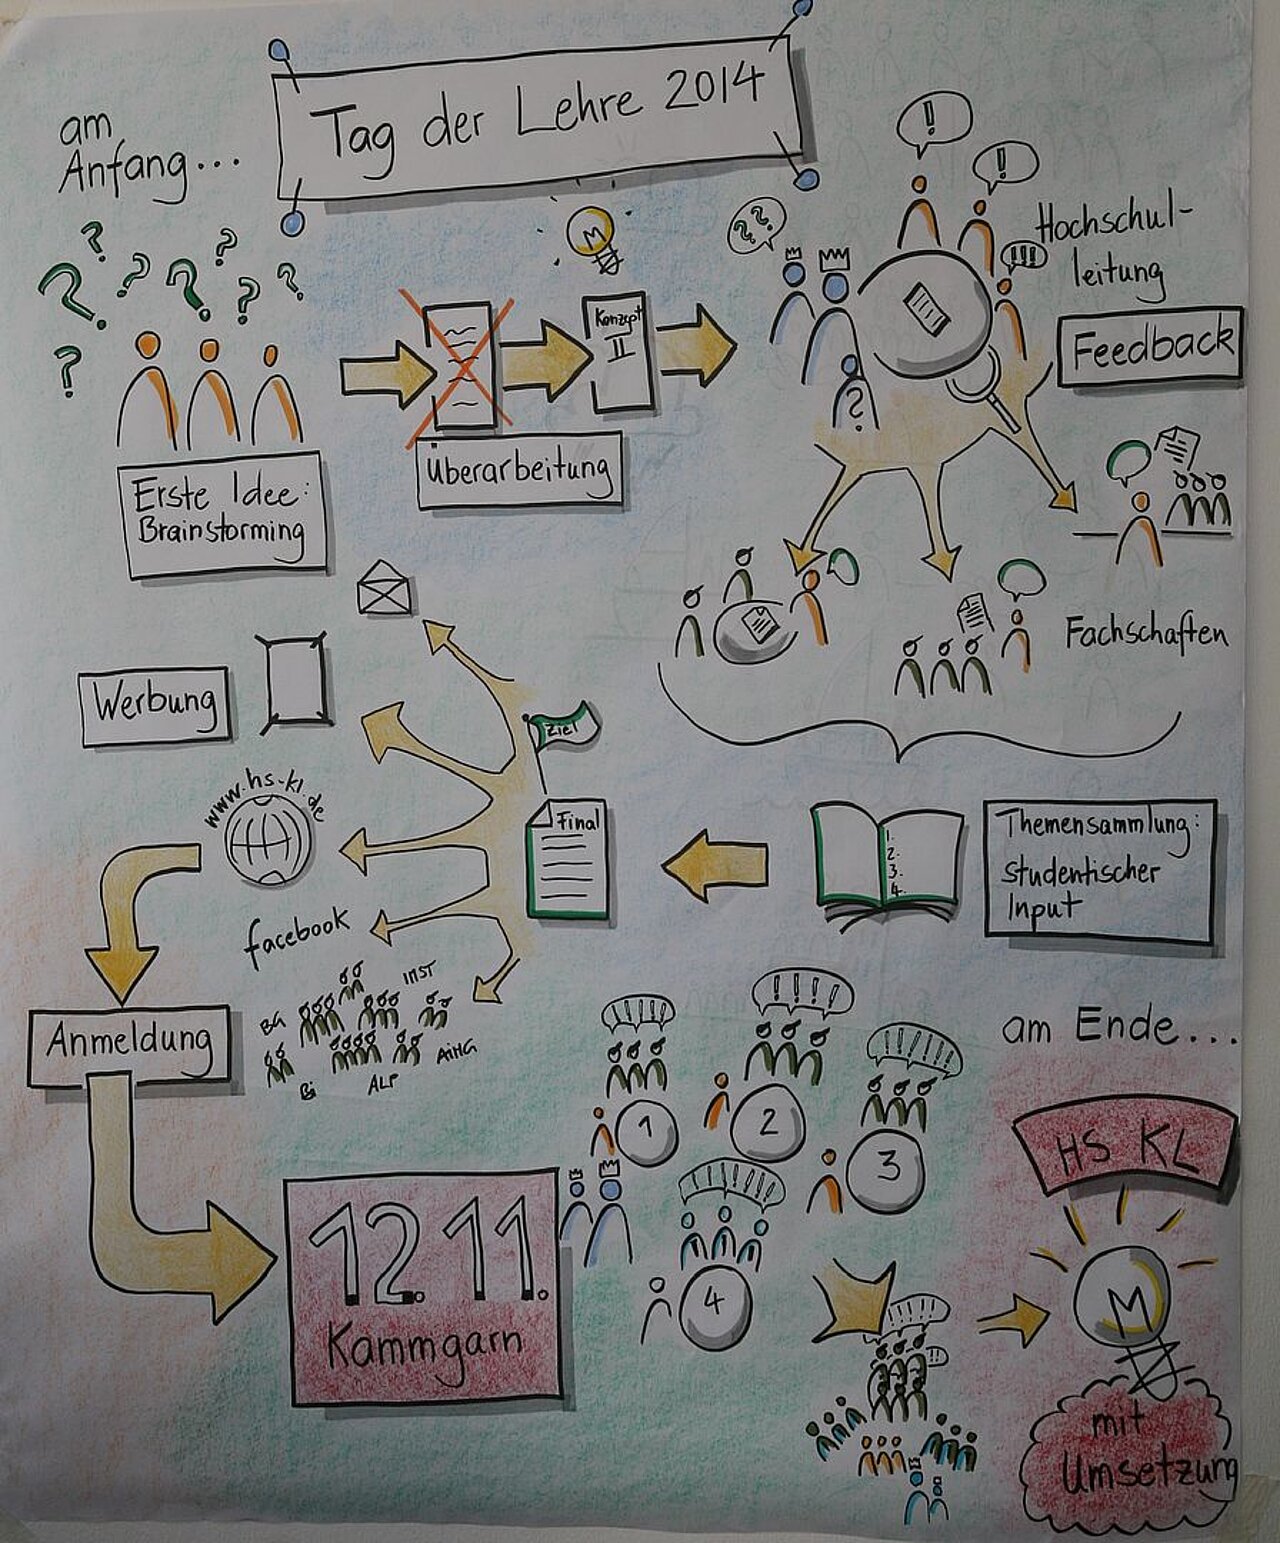 Tag der Lehre 2014
am
Anfang...
Erste Idee:
Brainstorming
Überarbeitung
Konzept
II
Hochschul-
leitung
Feedback
Fachschaften
Themensammlung:
Studentischer
Input
1.
2.
3.
4.
Final
Ziel
Werbung
www.hs-kl.de
facebook
INST
BG
AiHG
ALP
Bi
Anmeldung
12.11.
Kammgarn
1
2
3
4
am Ende...
HS KL
mit
Umsetzung